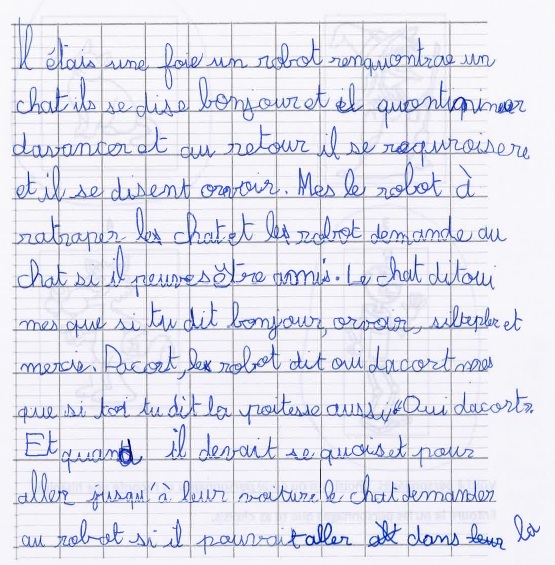 Il étais une foie un robot renquontrae un
chat ils se dise bonjour et il quontipinuer
davancer et au retour il se requroisere
et il se disent orvoir. Mes le robot à
ratraper les chat et les robot demande au
chat si il peuves être amis. Le chat dit oui
mes que si tu dit bonjour, orvoir, siltepler et
mercie. Dacort, les robot dit oui dacort mes
que si toi tu dit la poitesse aussi, "Oui dacort".
Et quand il devait se quoiset pour
aller jusqu'à leur voiture le chat demander
au robot si il pouvait aller dans leur la